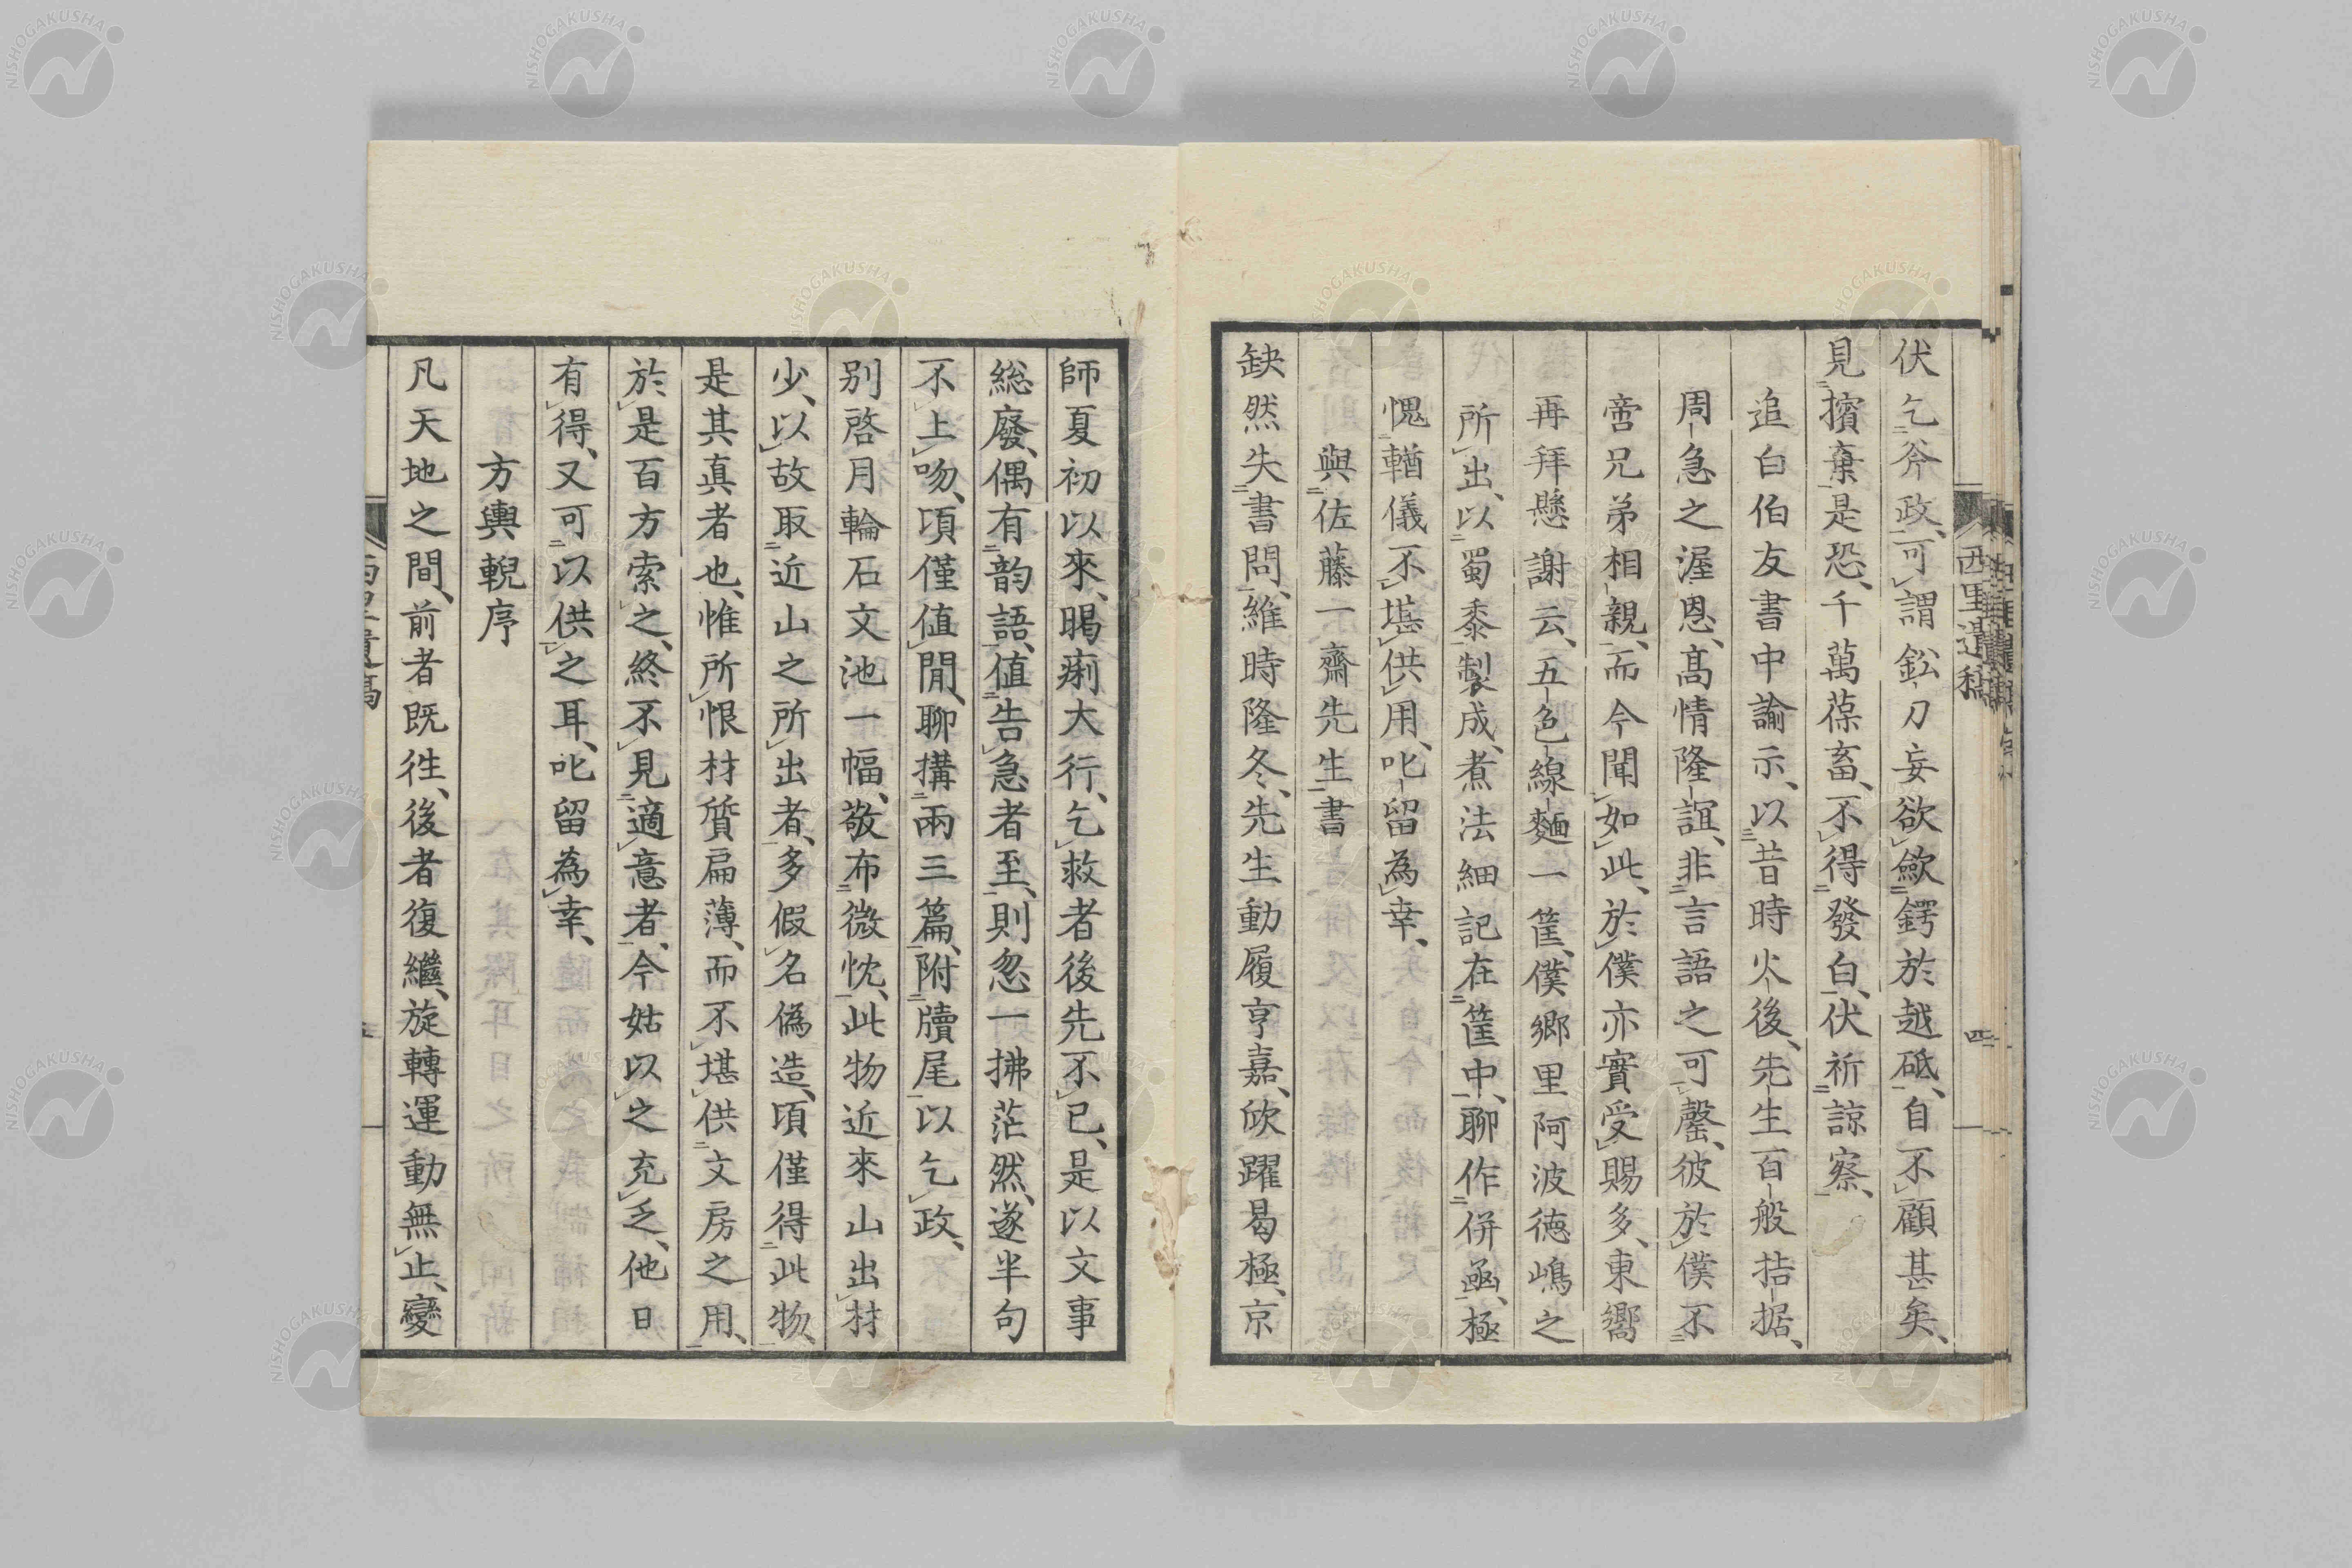 伏乞斧政、可謂鈆刀妄欲斂鍔於越砥、自不顧甚矣、
見擯棄是恐、千萬葆畜、不得發白、伏祈諒察、
追白伯友書中諭示、以昔時火後、先生百般拮据、
周急之渥恩、高情隆誼、非言語之可罄、彼於僕不
啻兄弟相親、而今聞如此、於僕亦實受賜多、東嚮
再拜懸謝云、五色線麵一筐、僕鄉里阿波德嶋之
所出、以蜀黍製成、煮法細記在筐中、聊作併凾、極
愧輶儀不堪供用、叱留為幸、
與佐藤一齋先生書
缺然失書問、維時隆冬、先生動履亨嘉、欣躍曷極、京
師夏初以來、暍痢大行、乞救者後先不已、是以文事
総廢、偶有韵語、値告急者至、則忽一拂茫然、遂半句
不上吻、頃僅値閒、聊搆兩三篇、附牘尾以乞政、
別啓月輪石文池一幅、敬布微忱、此物近來山出材
少、以故取近山之所出者、多假名偽造、頃僅得此物、
是其真者也、惟所恨材質扁薄、而不堪供文房之用、
於是百方索之、終不見適意者、今姑以之充乏、他日
有得、又可以供之耳、叱留為幸、
方輿輗序
凡天地之間、前者既徃、後者復繼、旋轉運動無止、變
西里遺稿
四
NISHOGAKUSHA